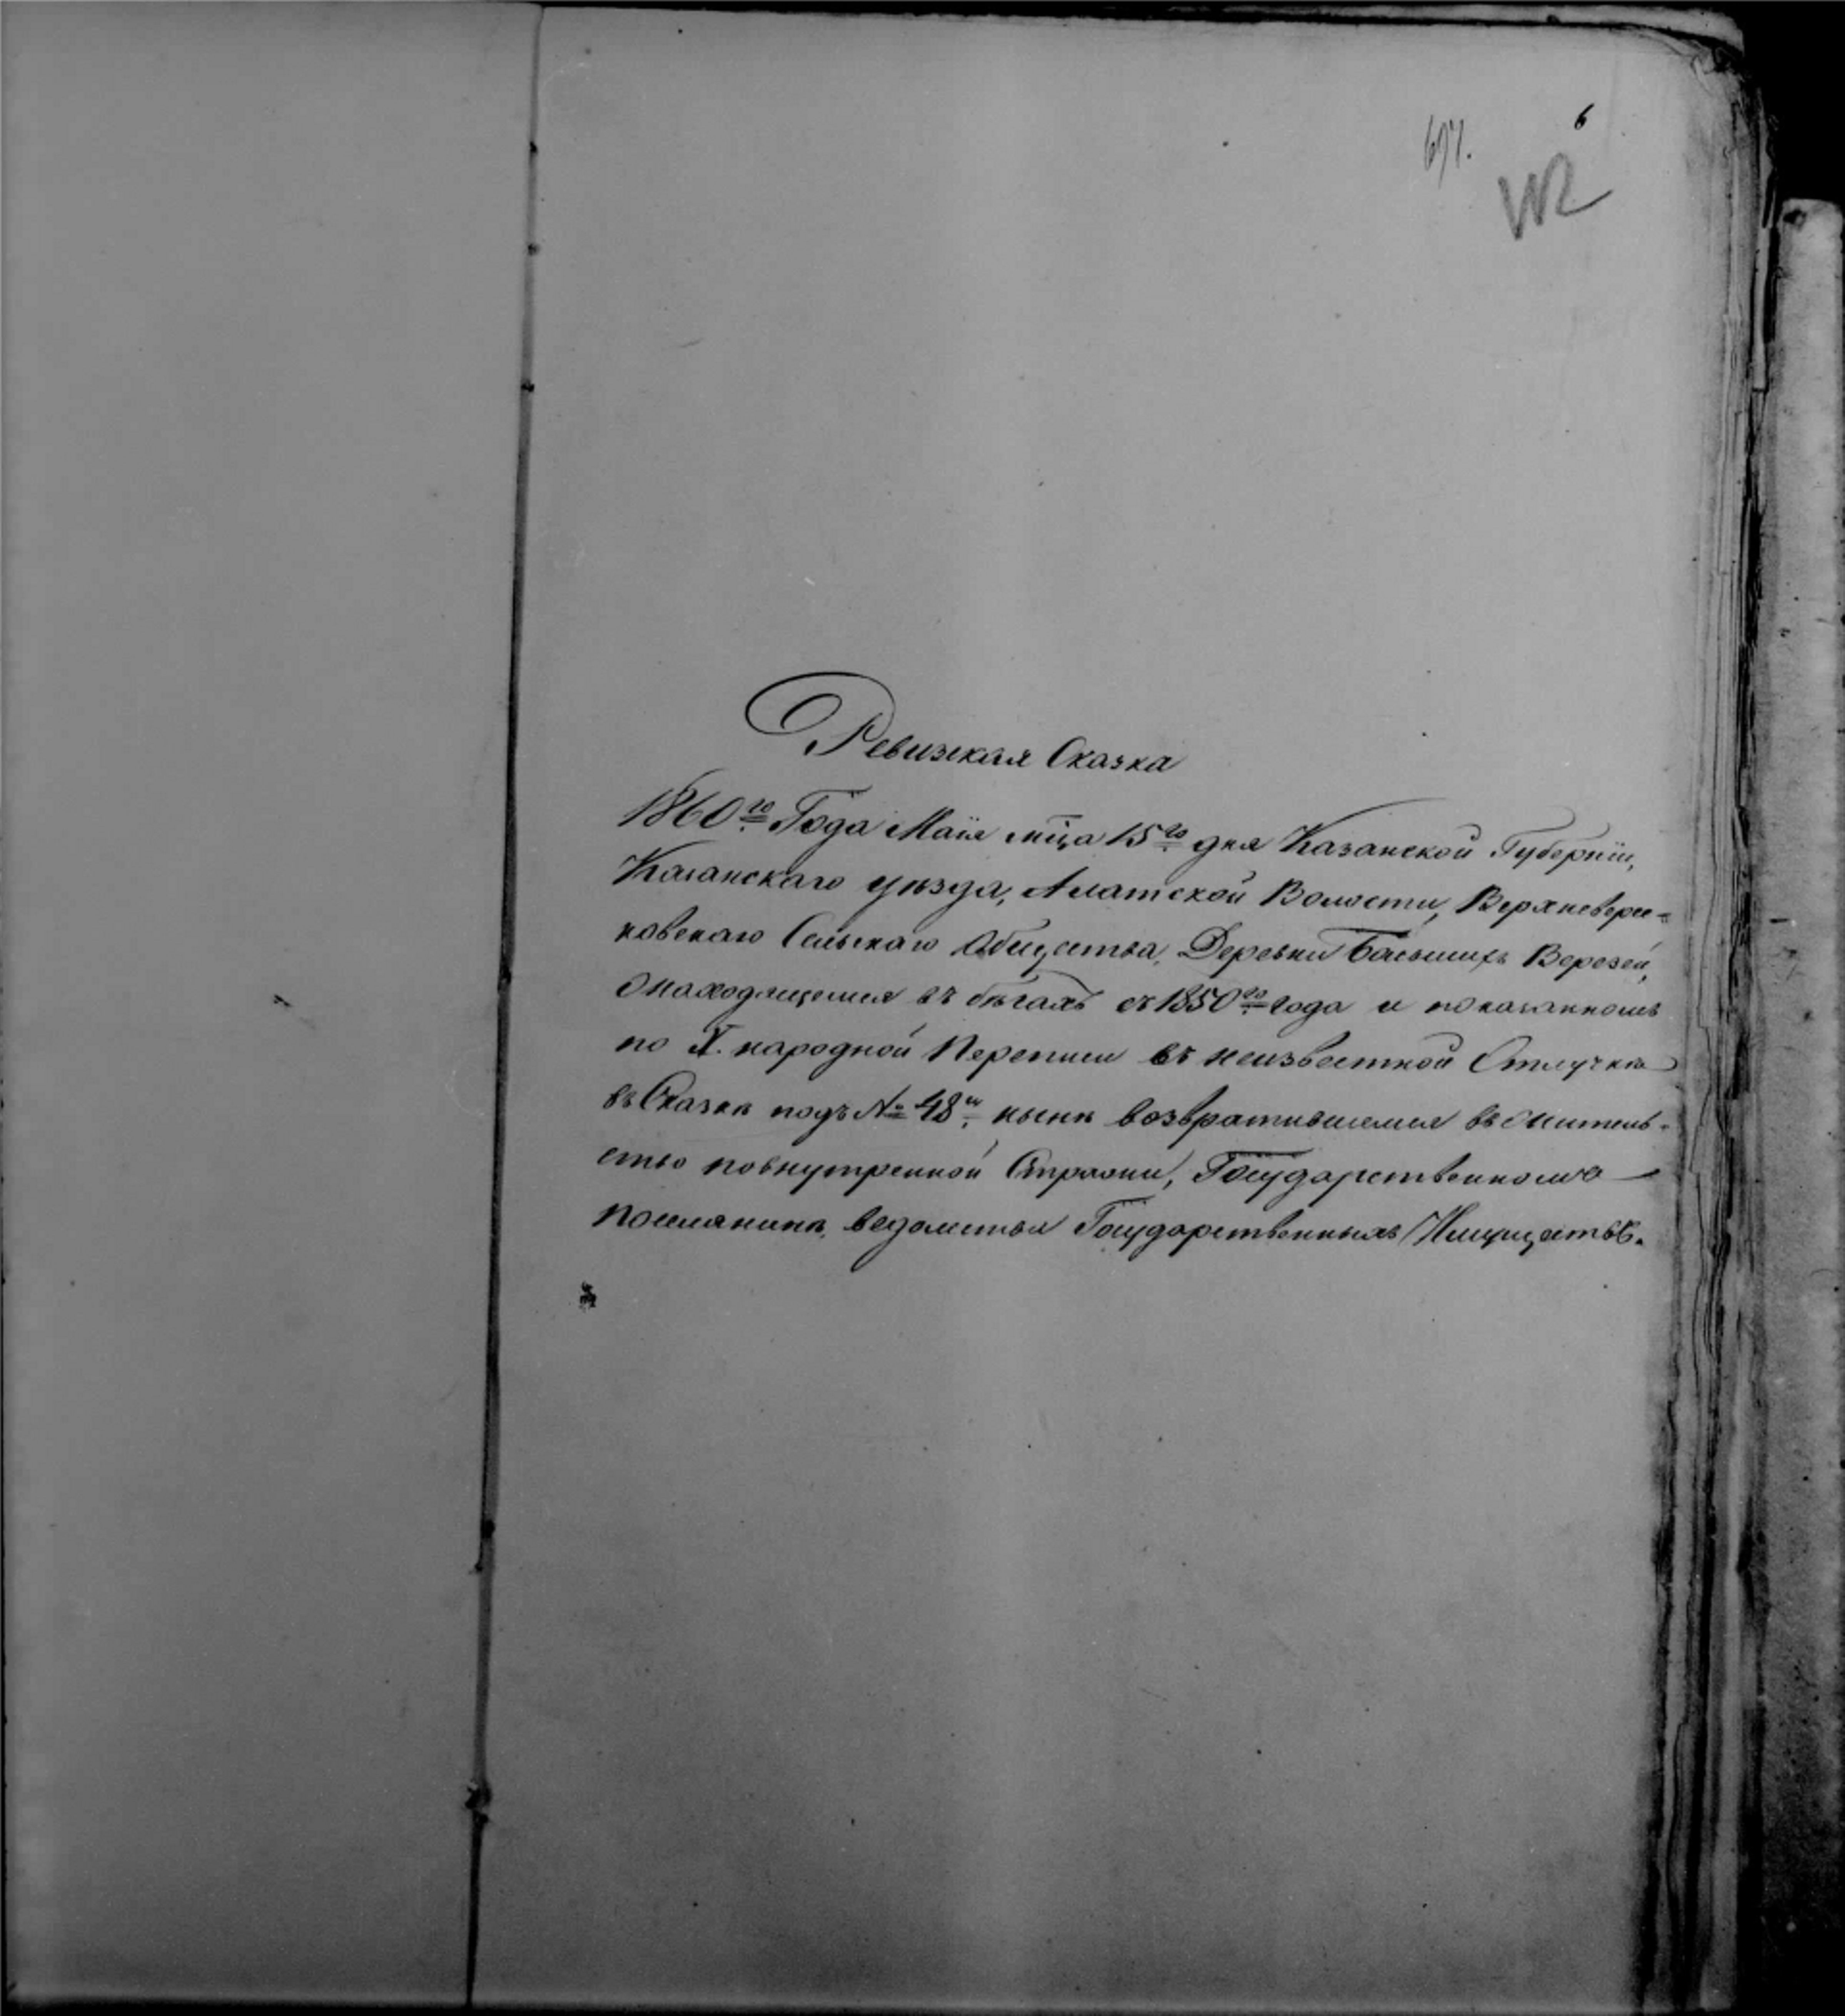 6
697.
№2
Ревизская Сказка
1860го Года Маія мца 15го дня Казанской Губерніи,
Казанскаго уѣзда, Алатской Волости, Верхневере-
ковскаго Сельскаго Общества, Деревни Большихъ Верезей,
О находящемся въ бѣгахъ съ 1850го года и показанномъ
по X. народной Переписи въ неизвестной Отлучкѣ
въ Сказкѣ подъ № 48м, нынѣ возвратившемся въ жительь-
ство повнутренной Стражи, Государственномъ
поселянинѣ, ведомства Государственныхъ Имуществъ.